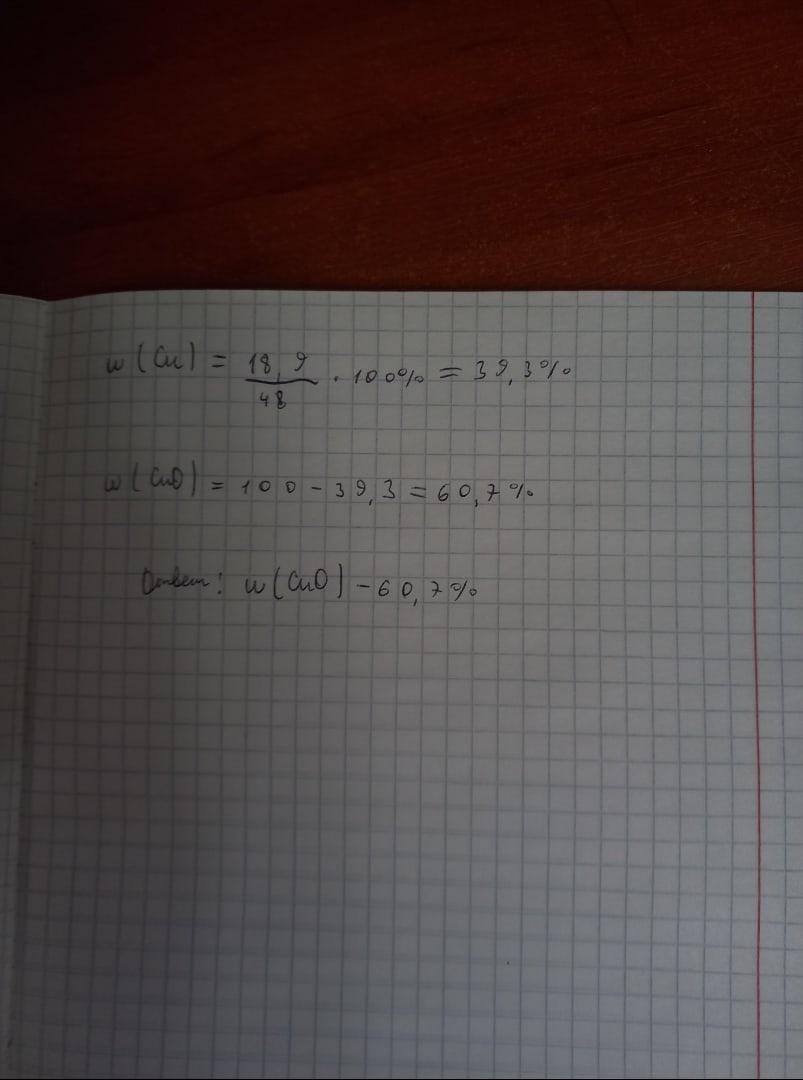 w (Cu) = 18,9/48 · 100% = 39,3%
w (CuO) = 100 - 39,3 = 60,7%
Ответ: w (CuO) - 60,7%